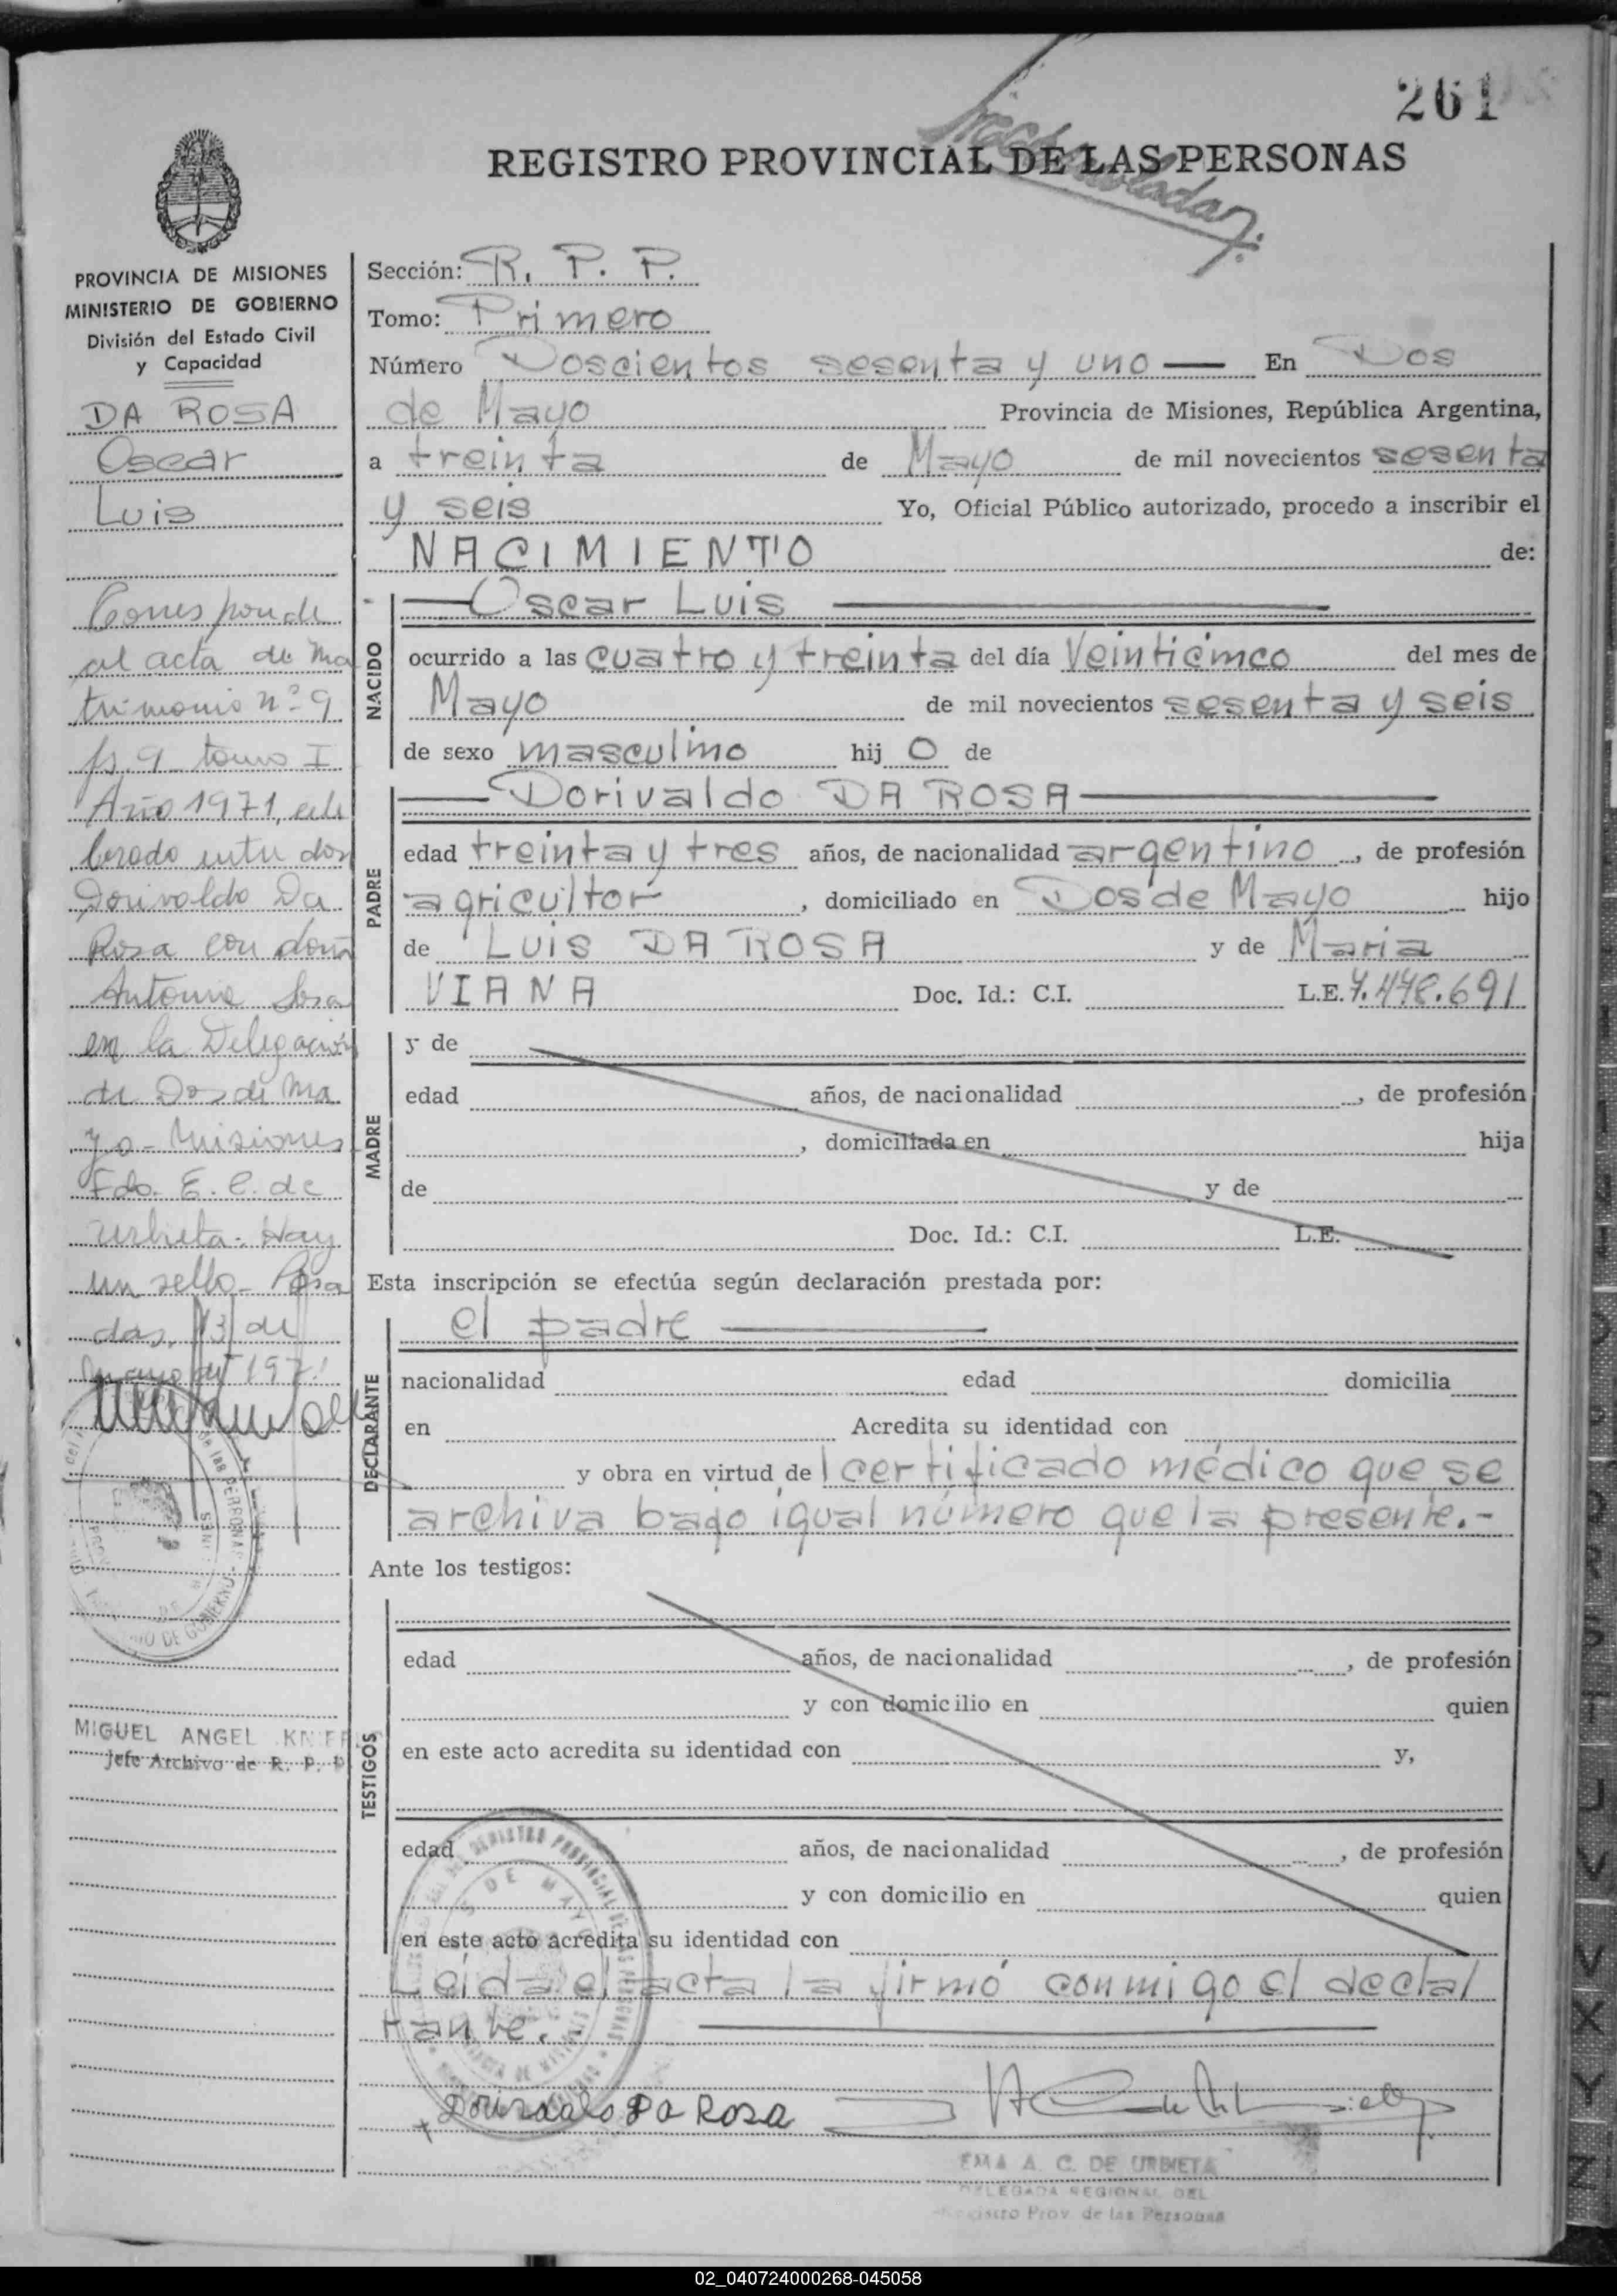 261
REGISTRO PROVINCIAL DE LAS PERSONAS
PROVINCIA DE MISIONES
MINISTERIO DE GOBIERNO
División del Estado Civil
y Capacidad
DA ROSA
Oscar
Luis
Corresponde
al acta de Ma
trimonio nº 9
fs. 9 tomo I
Año 1971, cele
brado entre don
Dorivaldo Da
Rosa con doña
Antonia
en la Delegación
de Dos de Ma
yo - Misiones
Fdo. E. C. de
Urbieta. Hay
un sello - Posa
das, 13 de
mayo de 197
MIGUEL ANGEL
Jefe Archivo de R. P. P.
Sección: R. P. P.
Tomo: Primero
Número Doscientos sesenta y uno — En Dos
de Mayo Provincia de Misiones, República Argentina,
a treinta de Mayo de mil novecientos sesenta
y seis Yo, Oficial Público autorizado, procedo a inscribir el
NACIMIENTO de:
NACIDO
— Oscar Luis —
ocurrido a las cuatro y treinta del día Veinticinco del mes de
Mayo de mil novecientos sesenta y seis
de sexo masculino hij o de
PADRE
— Dorivaldo DA ROSA —
edad treinta y tres años, de nacionalidad argentino, de profesión
agricultor, domiciliado en Dos de Mayo hijo
de Luis DA ROSA y de Maria
VIANA Doc. Id.: C.I. L.E. 7.478.691
MADRE
y de
edad años, de nacionalidad , de profesión
, domiciliada en hija
de y de
Doc. Id.: C.I. L.E.
Esta inscripción se efectúa según declaración prestada por:
DECLARANTE
el padre —
nacionalidad edad domicilia
en Acredita su identidad con
y obra en virtud de l certificado médico que se
archiva bajo igual número que la presente.-
Ante los testigos:
TESTIGOS
edad años, de nacionalidad , de profesión
y con domicilio en quien
en este acto acredita su identidad con y,
edad años, de nacionalidad , de profesión
y con domicilio en quien
en este acto acredita su identidad con
Leída el acta la firmó conmigo el declal
rante.
Dorivaldo Da Rosa
EMA A. C. DE URBIETA
DELEGADA REGIONAL DEL
Registro Prov. de las Personas
02_040724000268-045058